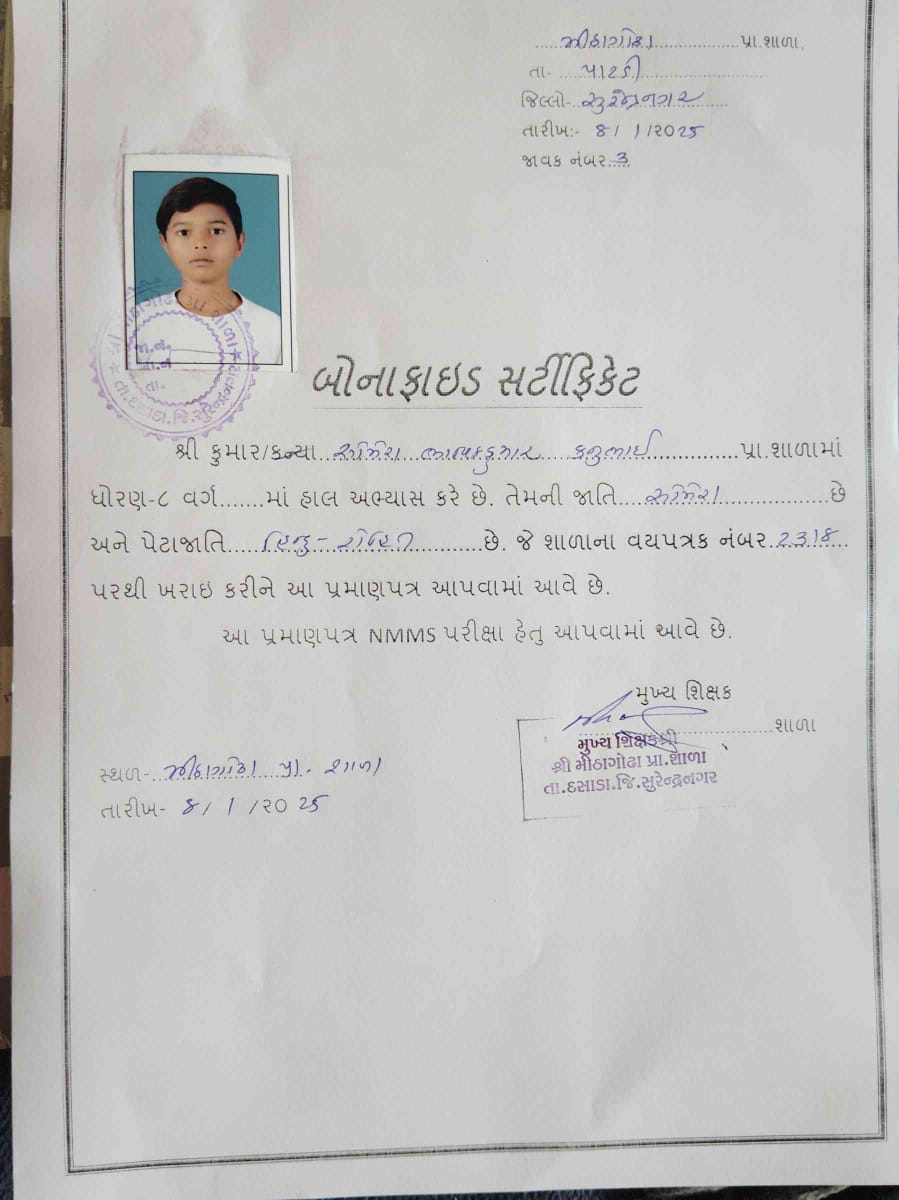 મીઠાગોઢા પ્રા.શાળા,
તા- પાટડી
જિલ્લો- સુરેન્દ્રનગર
તારીખ:- 8/1/૨૦25
જાવક નંબર 3
બોનાફાઇડ સર્ટીફિકેટ
શ્રી કુમાર/કન્યા પ્રા.શાળામાં
ધોરણ-૮ વર્ગ......માં હાલ અભ્યાસ કરે છે. તેમની જાતિ છે
અને પેટાજાતિ હિન્દુ - છે. જે શાળાના વયપત્રક નંબર 2318
પરથી ખરાઇ કરીને આ પ્રમાણપત્ર આપવામાં આવે છે.
આ પ્રમાણપત્ર NMMS પરીક્ષા હેતુ આપવામાં આવે છે.
મુખ્ય શિક્ષક
શાળા
મુખ્ય શિક્ષકશ્રી
શ્રી મીઠાગોઢા પ્રા.શાળા
તા.દસાડા.જિ.સુરેન્દ્રનગર
સ્થળ- મીઠાગોઢા પ્રા. શાળા
તારીખ- 8/1/૨૦25
તા.દસાડા.જિ.સુરેન્દ્રનગર